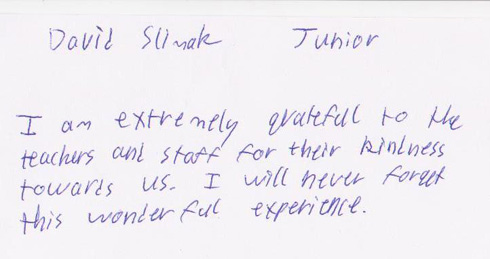 David Slimak Junior
I am extremely grateful to the
teachers and staff for their kindness
towards us. I will never forget
this wonderful experience.